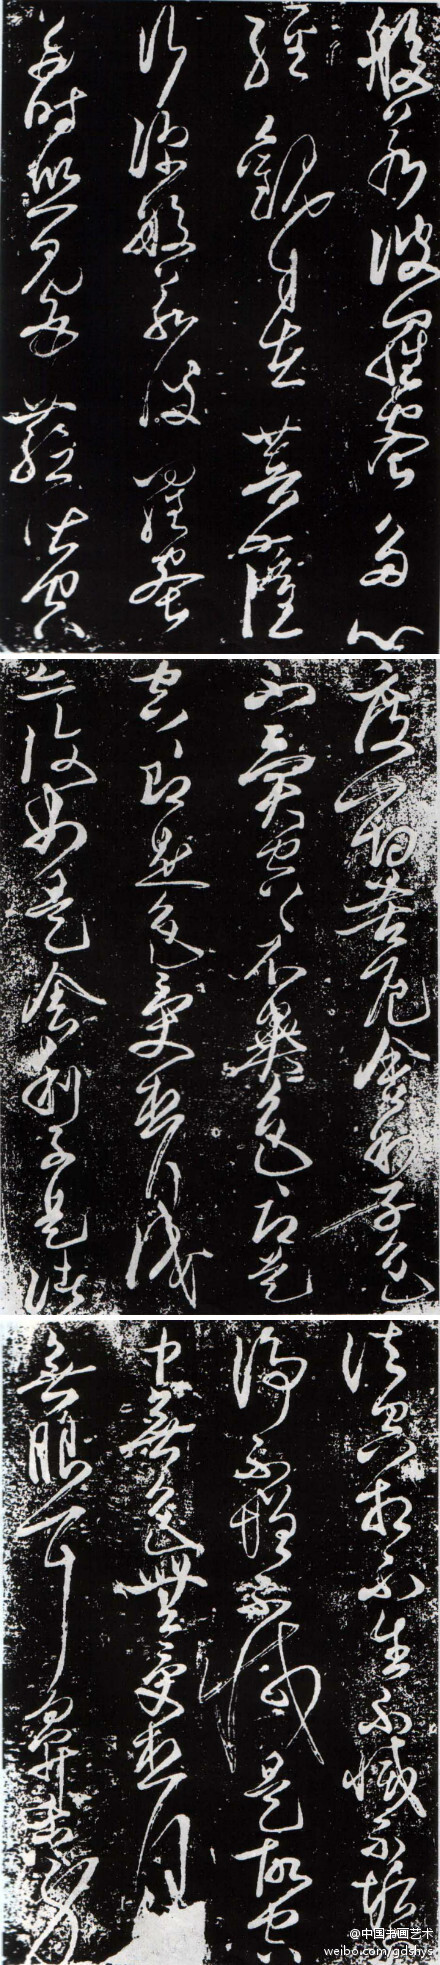 般若波羅蜜多心
經觀自在菩薩
行深般若波羅蜜
多時照見五蘊皆空
度一切苦厄舍利子色
不異空々不異色々即是
空々即是色受想行識
亦復如是舍利子是諸
法空相不生不滅不垢
淨不增不減是故空
中無色無受想行
無眼耳鼻舌身
@中国书画艺术
weibo.com/gdshys